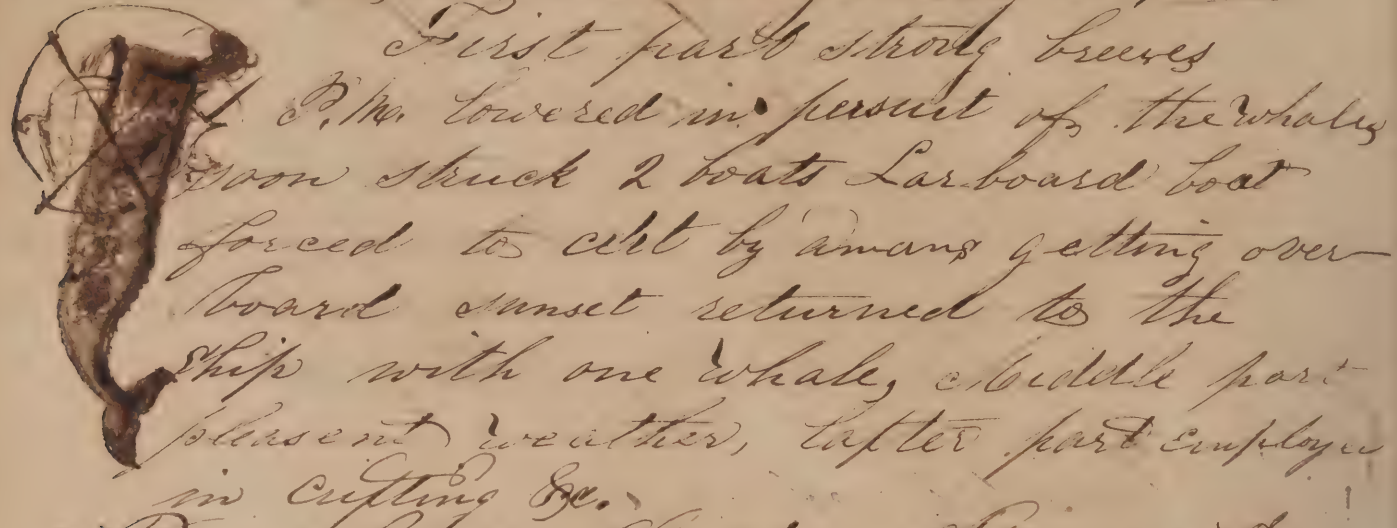 First part strong breeves
P.M. lowered in persuit of the whales
soon struck 2 boats Larboard boat
forced to cut by a mans getting over
board sunset returned to the
ship with one whale, Middle part
pleasent weather, latter part employe
in cutting &c.